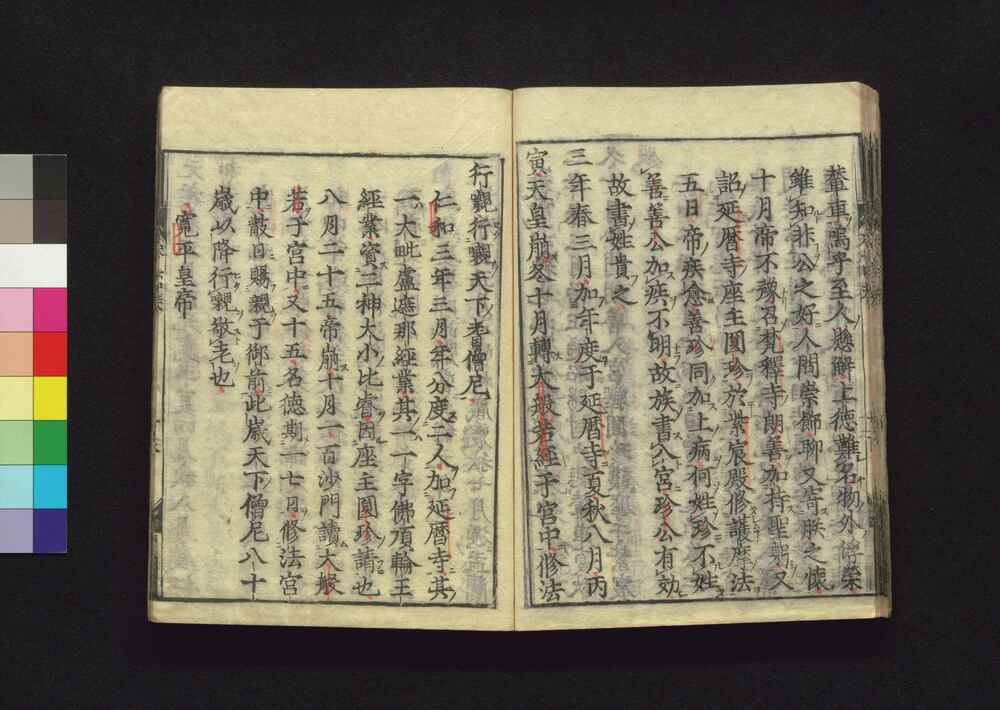 輦車嗚乎至人懸解上德難名物外
雖知非公之好人間崇飾聊又寄朕之懷
十月帝不豫召梵釋寺朗善加持聖躬又
詔延曆寺座主圓珍於紫宸殿修護摩法
五日帝疾愈善珍同加上病何姓珍不姓
善善公加疾不明故族書入宮珍公有効
故書姓貴之
三年春三月加年度于延曆寺夏秋八月丙
寅天皇崩冬十月轉大般若經于宮中修法
行觀行觀天下耆僧尼
仁和三年三月年分度二人加延曆寺其
一大毗盧遮那經業其一一字佛頂輪王
經業賽二神大小比睿因座主圓珍請也
八月二十五帝崩十月一百沙門讀大般
若于宮中又十五名德期一七日修法宮
中散日賜親于御前此歲天下僧尼八十
歲以降行觀敬老也
寬平皇帝